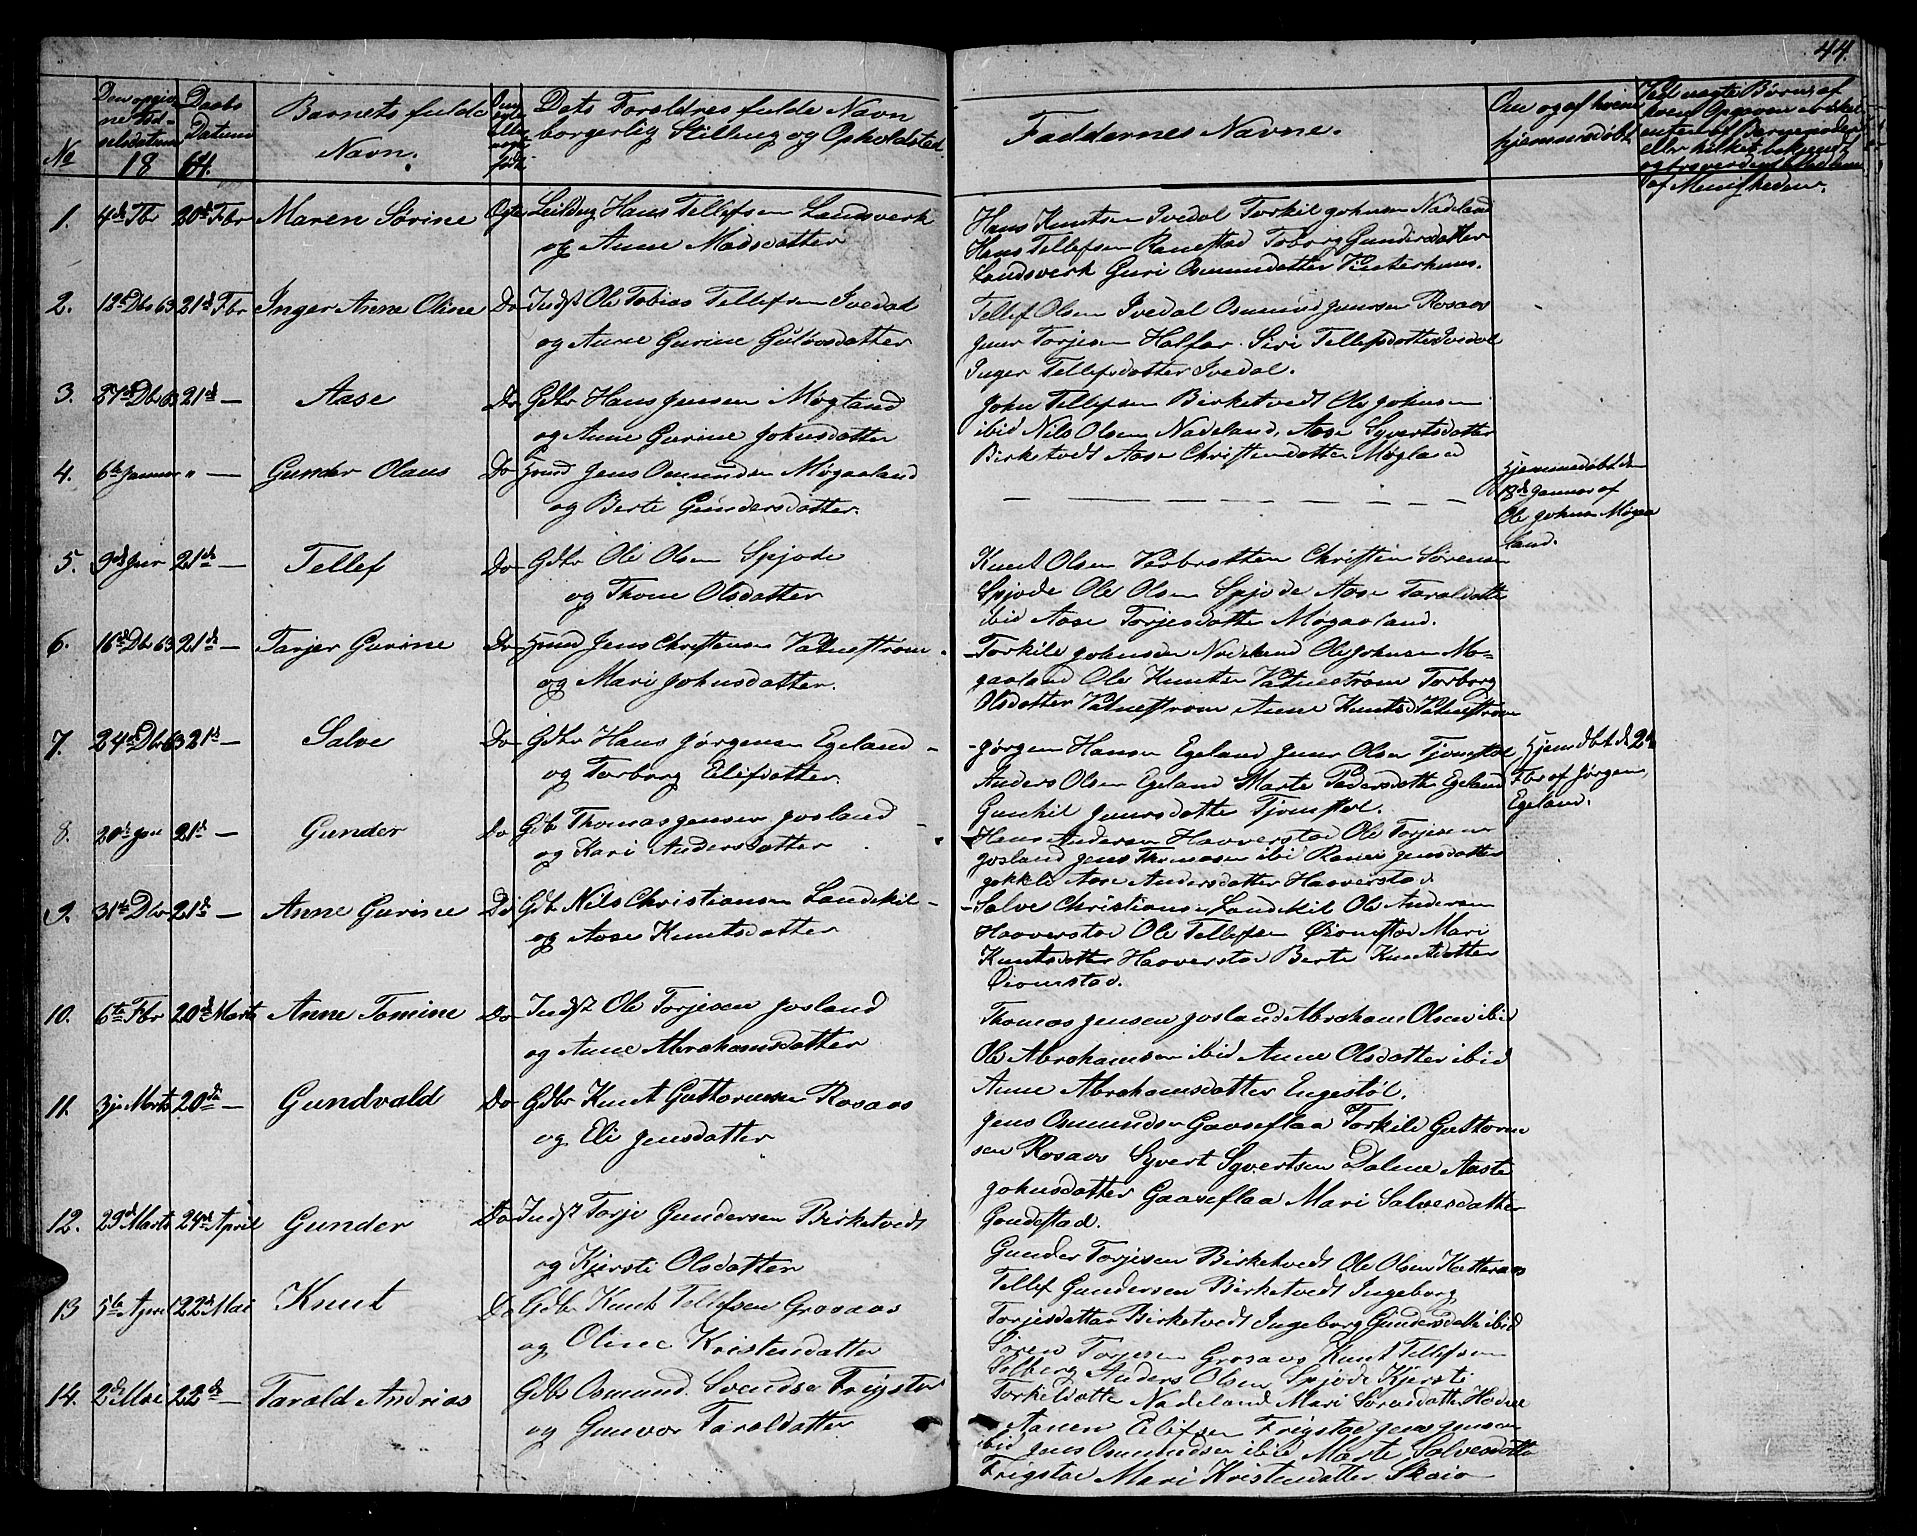 44.
No
Den opgivne Fødselsdatum
Daabs Datum
18 64.
Barnets fulde
Navn.
Dets Foraldres fulde Navn
borgerlig Stilling og Opholdsted.
Faddernes Navne.
Om og af hvem
hjemmedøbt
af Menigheden.
1. 4de Fbr 20de Fbr Maren Sørine Ægte Hans Tellefsen Landsverk
og Anne Madsdatter
Hans Knutsen Ivedal Torkil Johnsen Nadeland
Hans Tellefsen Ranestad Toborg Gundersdatter
Landsverk Guri Osmundatter
2. 12te Dbr 63 21de Fbr Inger Anne Oline Do Indst Ole Tobias Tellefsen Ivedal
og Anne Gurine
Tellef Olsen Ivedal Osmund Jensen Rosaas
Torjesen Halfar. Siri Tellefsdatter Ivedal
Inger Tellefsdatter Ivedal.
3. 27de Dbr 63 21de — Aase Do Gdbr Hans Jensen Mogland
og Anne Gurine Johnsdatter
John Tellefsen Birketvedt Ole Johnsen
ibid Nils Olsen Nadeland, Aase Syvertsdatter
Birketvedt Aase Christiendatter Mogland
4. 6te Januar " — Gunder Olaus Do Jens Osmundsen Møgaaland
og Berte Gundersdatter.
Hjemmedøbt den
18de Januar af
Ole Johnsen Møgaa
land.
5. 9de Jnr 21de — Tellef Do Gdbr Ole Olsen Spjode
og Thone Olsdatter
Knut Olsen Christin Sørensen
Spjode Ole Olsen Spjode Aase Taraldatte
ibid Aase Torjesdatter Møgaaland.
6. 16de Dbr 63 21de — Tarjer Gurine Do Jens Christensen Vatnestrøm
og Mari Johnsdatter.
Torkild Johnsen Nodeland Ole Johnsen Mø-
gaaland Ole Knutsen Vatnestrøm Torborg
Olsdatter Vatnestrøm Anne Knutsd Vatnestrøm
7. 24de Dbr 63 21de — Salve Do Gdbr Hans Jørgensen Egeland
og Torborg Elifsdatter.
Jørgen Hansen Egeland Olsen Tjomstøl
Anders Olsen Egeland Marte Pedersdatte Egeland
Gunhil Tjomstøl.
Hjemdbt d 2de
Fbr af Jørgen
Egeland.
8. 20de Jnr 21de — Gunder Do Gdb Thomas Jensen Josland
og Kari Andersdatter
Hans Andersen Haaverstad Ole Torjesen
Josland Jens Thomasen ibi Jensdatter
Aase Andersdatter Haaverstad
9. 31te Dbr 21de — Anne Gurine Do Gdb Nils Christiansen Landskil
og Aase Knutsdatter
Salve Christiansen Landskil Ole Andersen
Haaverstad Ole Tellefsen Mari
Knutsdatter Haaverstad Berte Knutsdatter
10. 6te Fbr 20de Marts Anne Tomine Do Indst Ole Torjesen Josland
og Anne Abrahamsdatter
Thomas Jensen Josland Abraham Olsen ibid
Ole Abrahamsen ibid Anne Olsdatter ibid
Anne Abrahamsdatter Engestøl.
11. 3je Marts 20de — Gundvald Do Gdbr Knut Guttormsen Rosaas
og Eli Jensdatter
Jens Osmundsen Gaaseflaa Torkild Guttorm
sen Rosaas Syvert Syvertsen Dalene Aaste
Johnsdatter Gaaseflaa Mari Salvesdatter
12. 23de Marts 24de April Gunder Do Indst Torje Gundersen Birketvedt
og Kjersti Olsdatter
Gunder Torjesen Birketvedt Ole Olsen Hatteraas
Tellef Gundersen Birketvedt Ingeborg
Torjesdatter Birketvedt Ingeborg Gundersdatte ibid
13 5te April 22de Mai Knut Do Gdbr Knut Tellefsen Grosaas
og Oline Kristensdatter
Søren Torjesen Grosaas Knut Tellefsen
Solberg Anders Olsen Spjode Kjersti
Torkildatte Nadeland Mari
14. 2de Mai 22de — Tarald Andrias Gdbr Osmund Svendsen Frigstad
og Gunvor Taraldatter
Aanen Elifsen Frigstad Jens Jensen
ibid Jens Osmundsen ibid Marte Salvesdatte
Frigstad Mari Kristensdatter Skaie